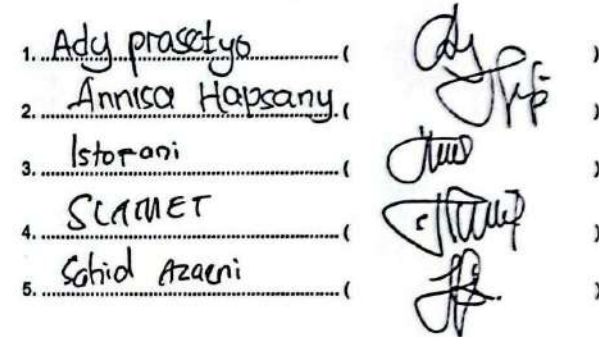 1. Ady prasetyo ( )
2. Annisa Hapsany ( )
3. Istofani ( )
4. SLAMET ( )
5. Sahid Azaeni ( )